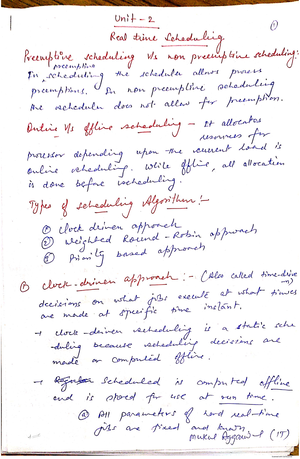 Unit - 2
①
Real time Scheduling
Preemptive scheduling V/s non preemptive scheduling:-
preemptive
In scheduling the scheduler allows process
preemptions. In non preemptive scheduling
the scheduler does not allow for preemption.
Online V/s offline scheduling - It allocates
resources for
processor depending upon the current load is
online scheduling. While offline, all allocation
is done before scheduling.
Types of scheduling Algorithm:-
① clock driven approach
② Weighted Round-Robin approach
③ Priority based approach
① clock-driven approach:- (Also called time-driven)
decisions on what jobs execute at what times
are made at specific time instant.
→ clock-driven scheduling is a static sche
-duling because scheduling decisions are
made or computed offline.
→ Scheduled is computed offline
and is stored for use at run time.
ⓐ All parameters of hard real-time
jobs are fixed and known
Mukul Aggarwal (IT)